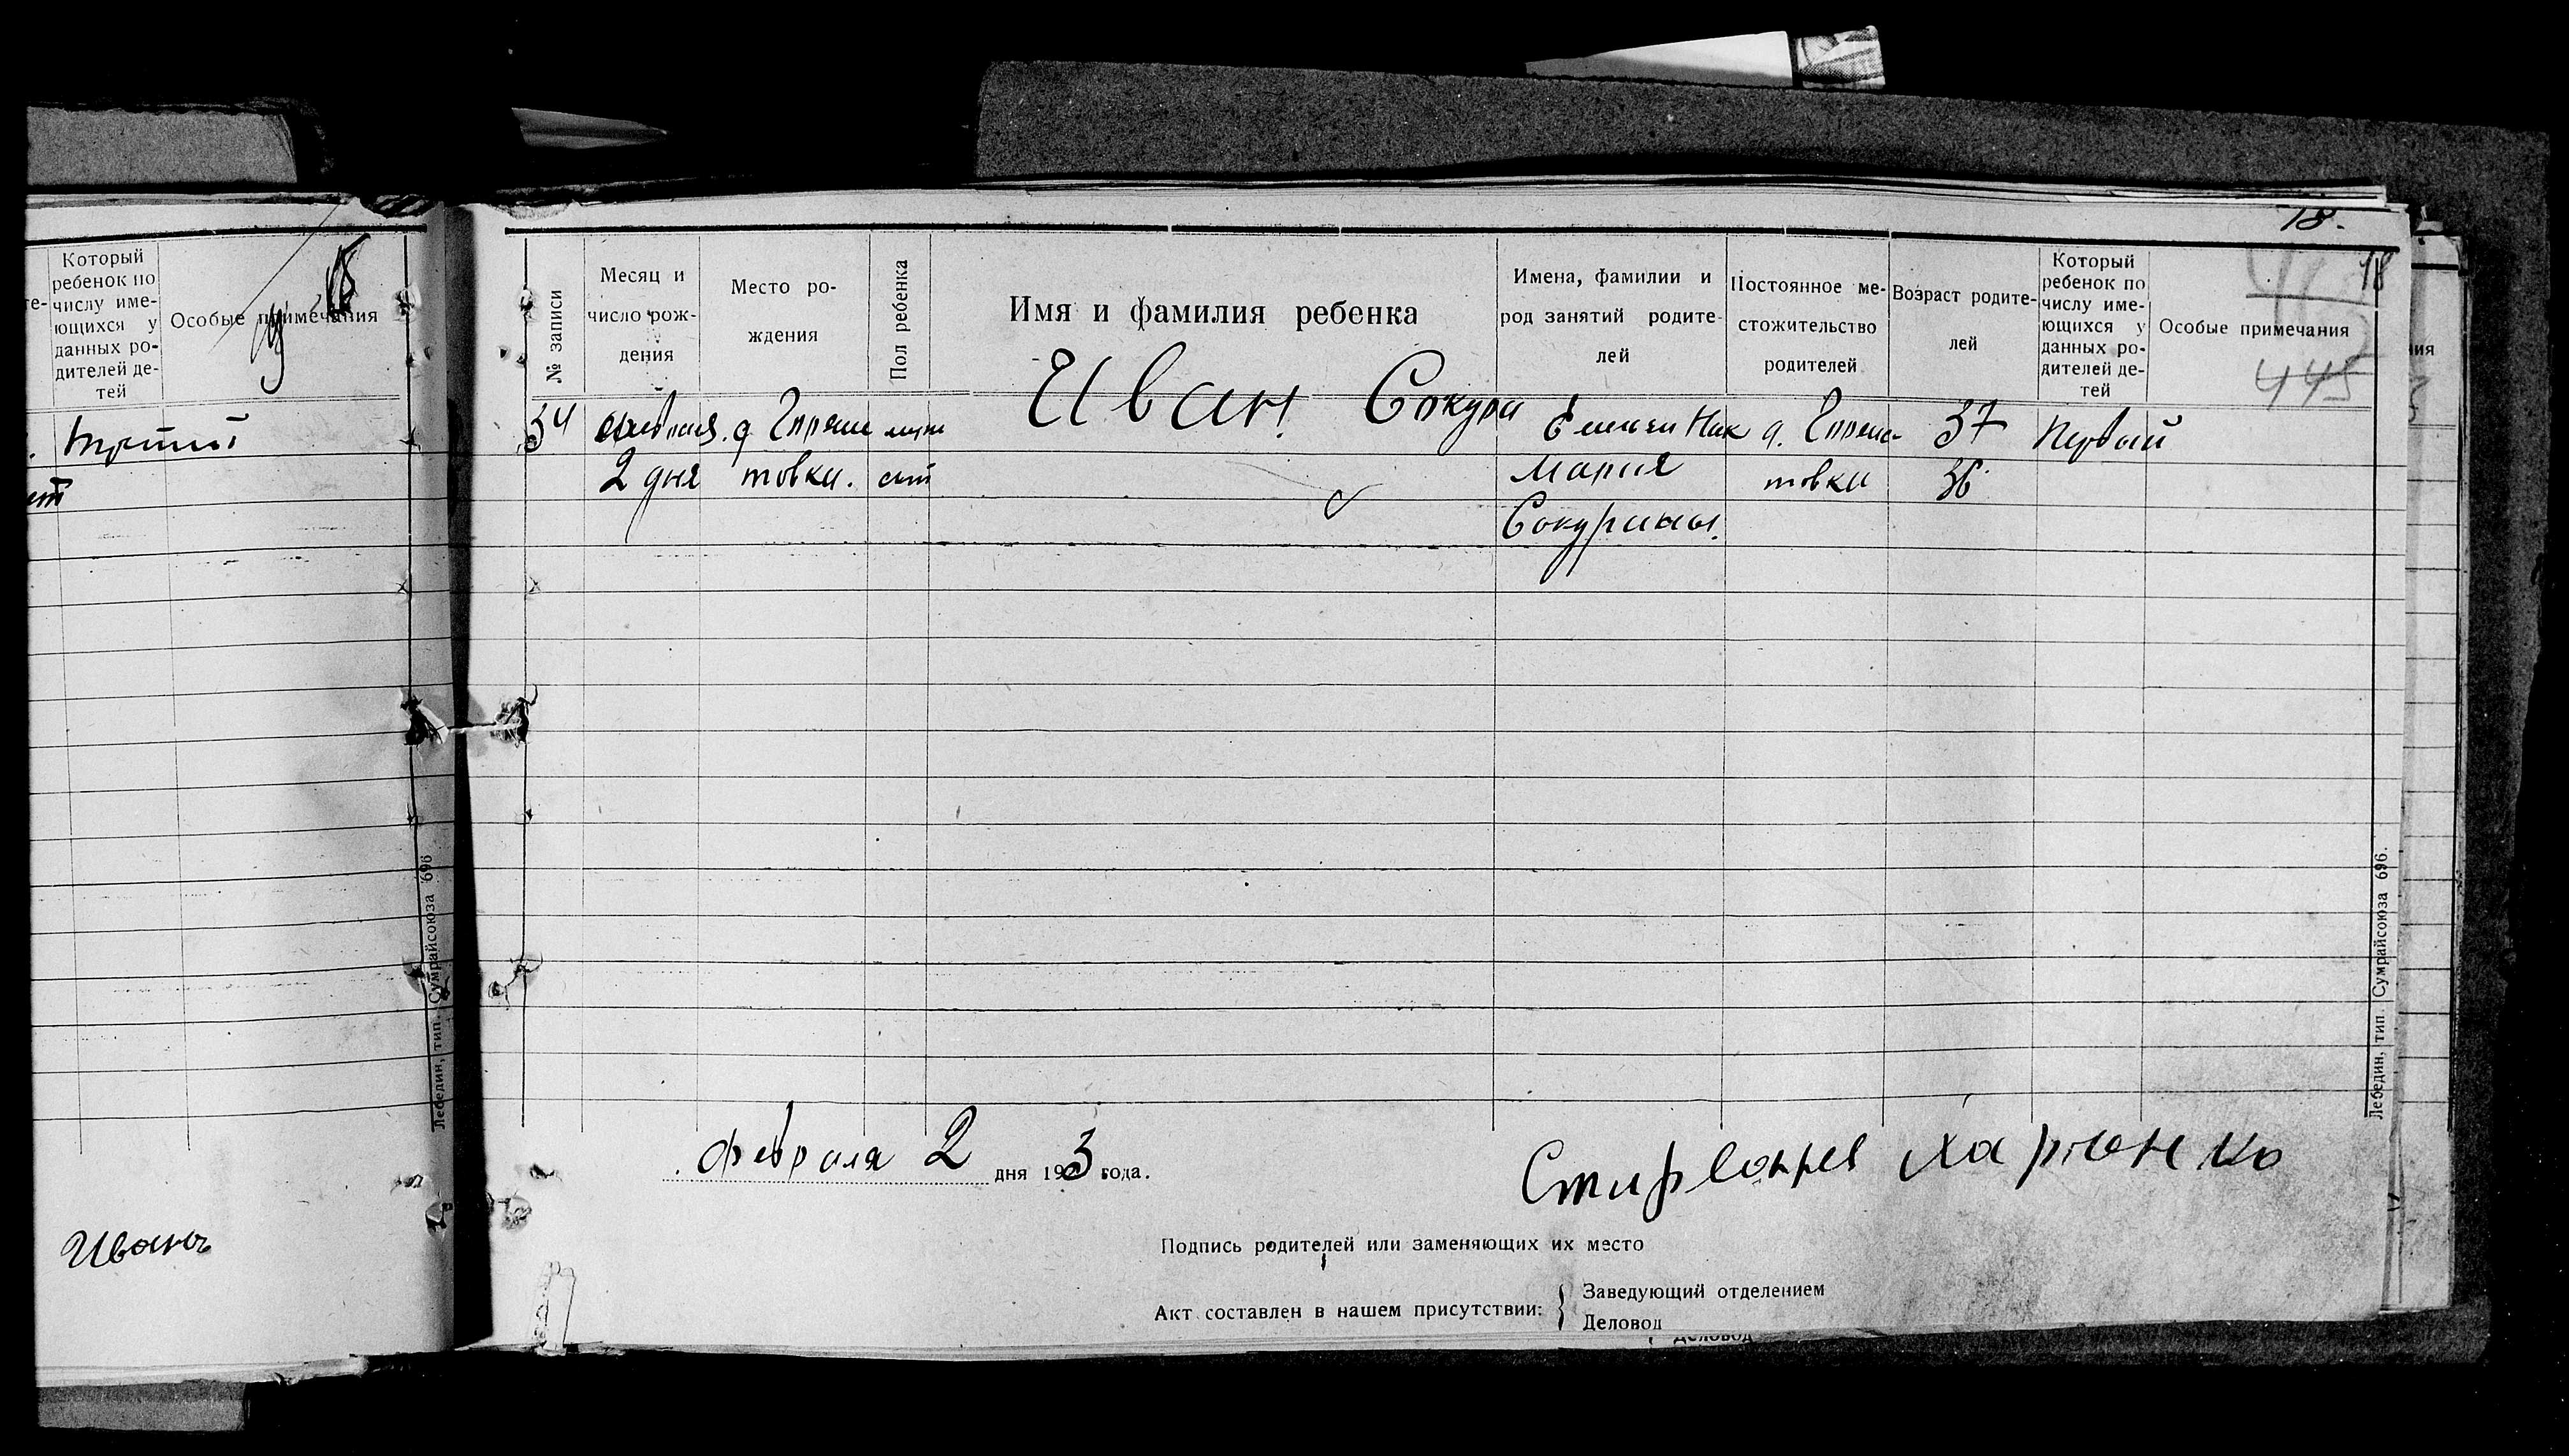 Который
ребенок по
числу име-
ющихся у
данных ро-
дителей де-
тей
Особые примечания
Третий
Лебедин, тип. Сумрайсоюза 696
Иванъ
18.
18
445
№ записи
Месяц и
число рож-
дения
Место ро-
ждения
Пол ребенка
Имя и фамилия ребенка
Имена, фамилии и
род занятий родите-
лей
Постоянное ме-
стожительство
родителей
Возраст родите-
лей
Который
ребенок по
числу име-
ющихся у
данных ро-
дителей де-
тей
Особые примечания
34 февраля д. муж Иван Сокура д. 37 Первый
2 дня товка. ской Мария товка 36
Сокурины.
Лебедин, тип. Сумрайсоюза 696.
Февраля 2 дня 1923 года.
Харченко
Подпись родителей или заменяющих их место
Акт составлен в нашем присутствии: Заведующий отделением
Деловод
Деловод